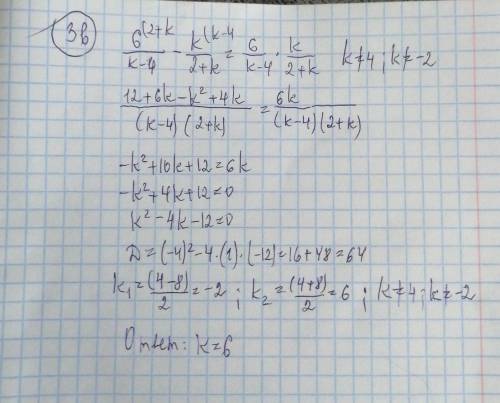 3в
6^(2+k / k-4 - k^(k-4 / 2+k = 6 / k-4 · k / 2+k   k≠4; k≠-2
12+6k-k²+4k / (k-4)(2+k) = 6k / (k-4)(2+k)
-k²+10k+12=6k
-k²+4k+12=0
k²-4k-12=0
D=(-4)²-4·(1)·(-12)=16+48=64
k₁=(4-8)/2=-2; k₂=(4+8)/2=6; k≠4; k≠-2
Ответ: k=6